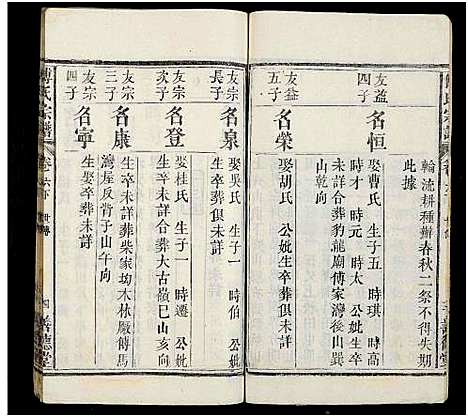 輪流耕種辦春秋二祭不得失期
此據
友益
四子
名恒
娶曹氏 生子五 時琪 時高
時才 時元 時太 公妣生卒
未詳合葬豹龍廟傅家灣後山巽
山乾向
友益
五子
名榮
娶胡氏 公妣生卒葬俱未詳
友宗
長子
名泉
娶吳氏 生子一 時伯 公妣
生卒葬俱未詳
友宗
次子
名登
娶桂氏 生子一 時遷 公妣
生卒未詳合葬大古嶺巳山亥向
友宗
三子
名康
生卒未詳葬柴家坳木林厰傅馬
灣屋反背子山午向
友宗
四子
名寧
生娶卒葬未詳
傅氏宗譜
卷六下
世傳
四
善德堂